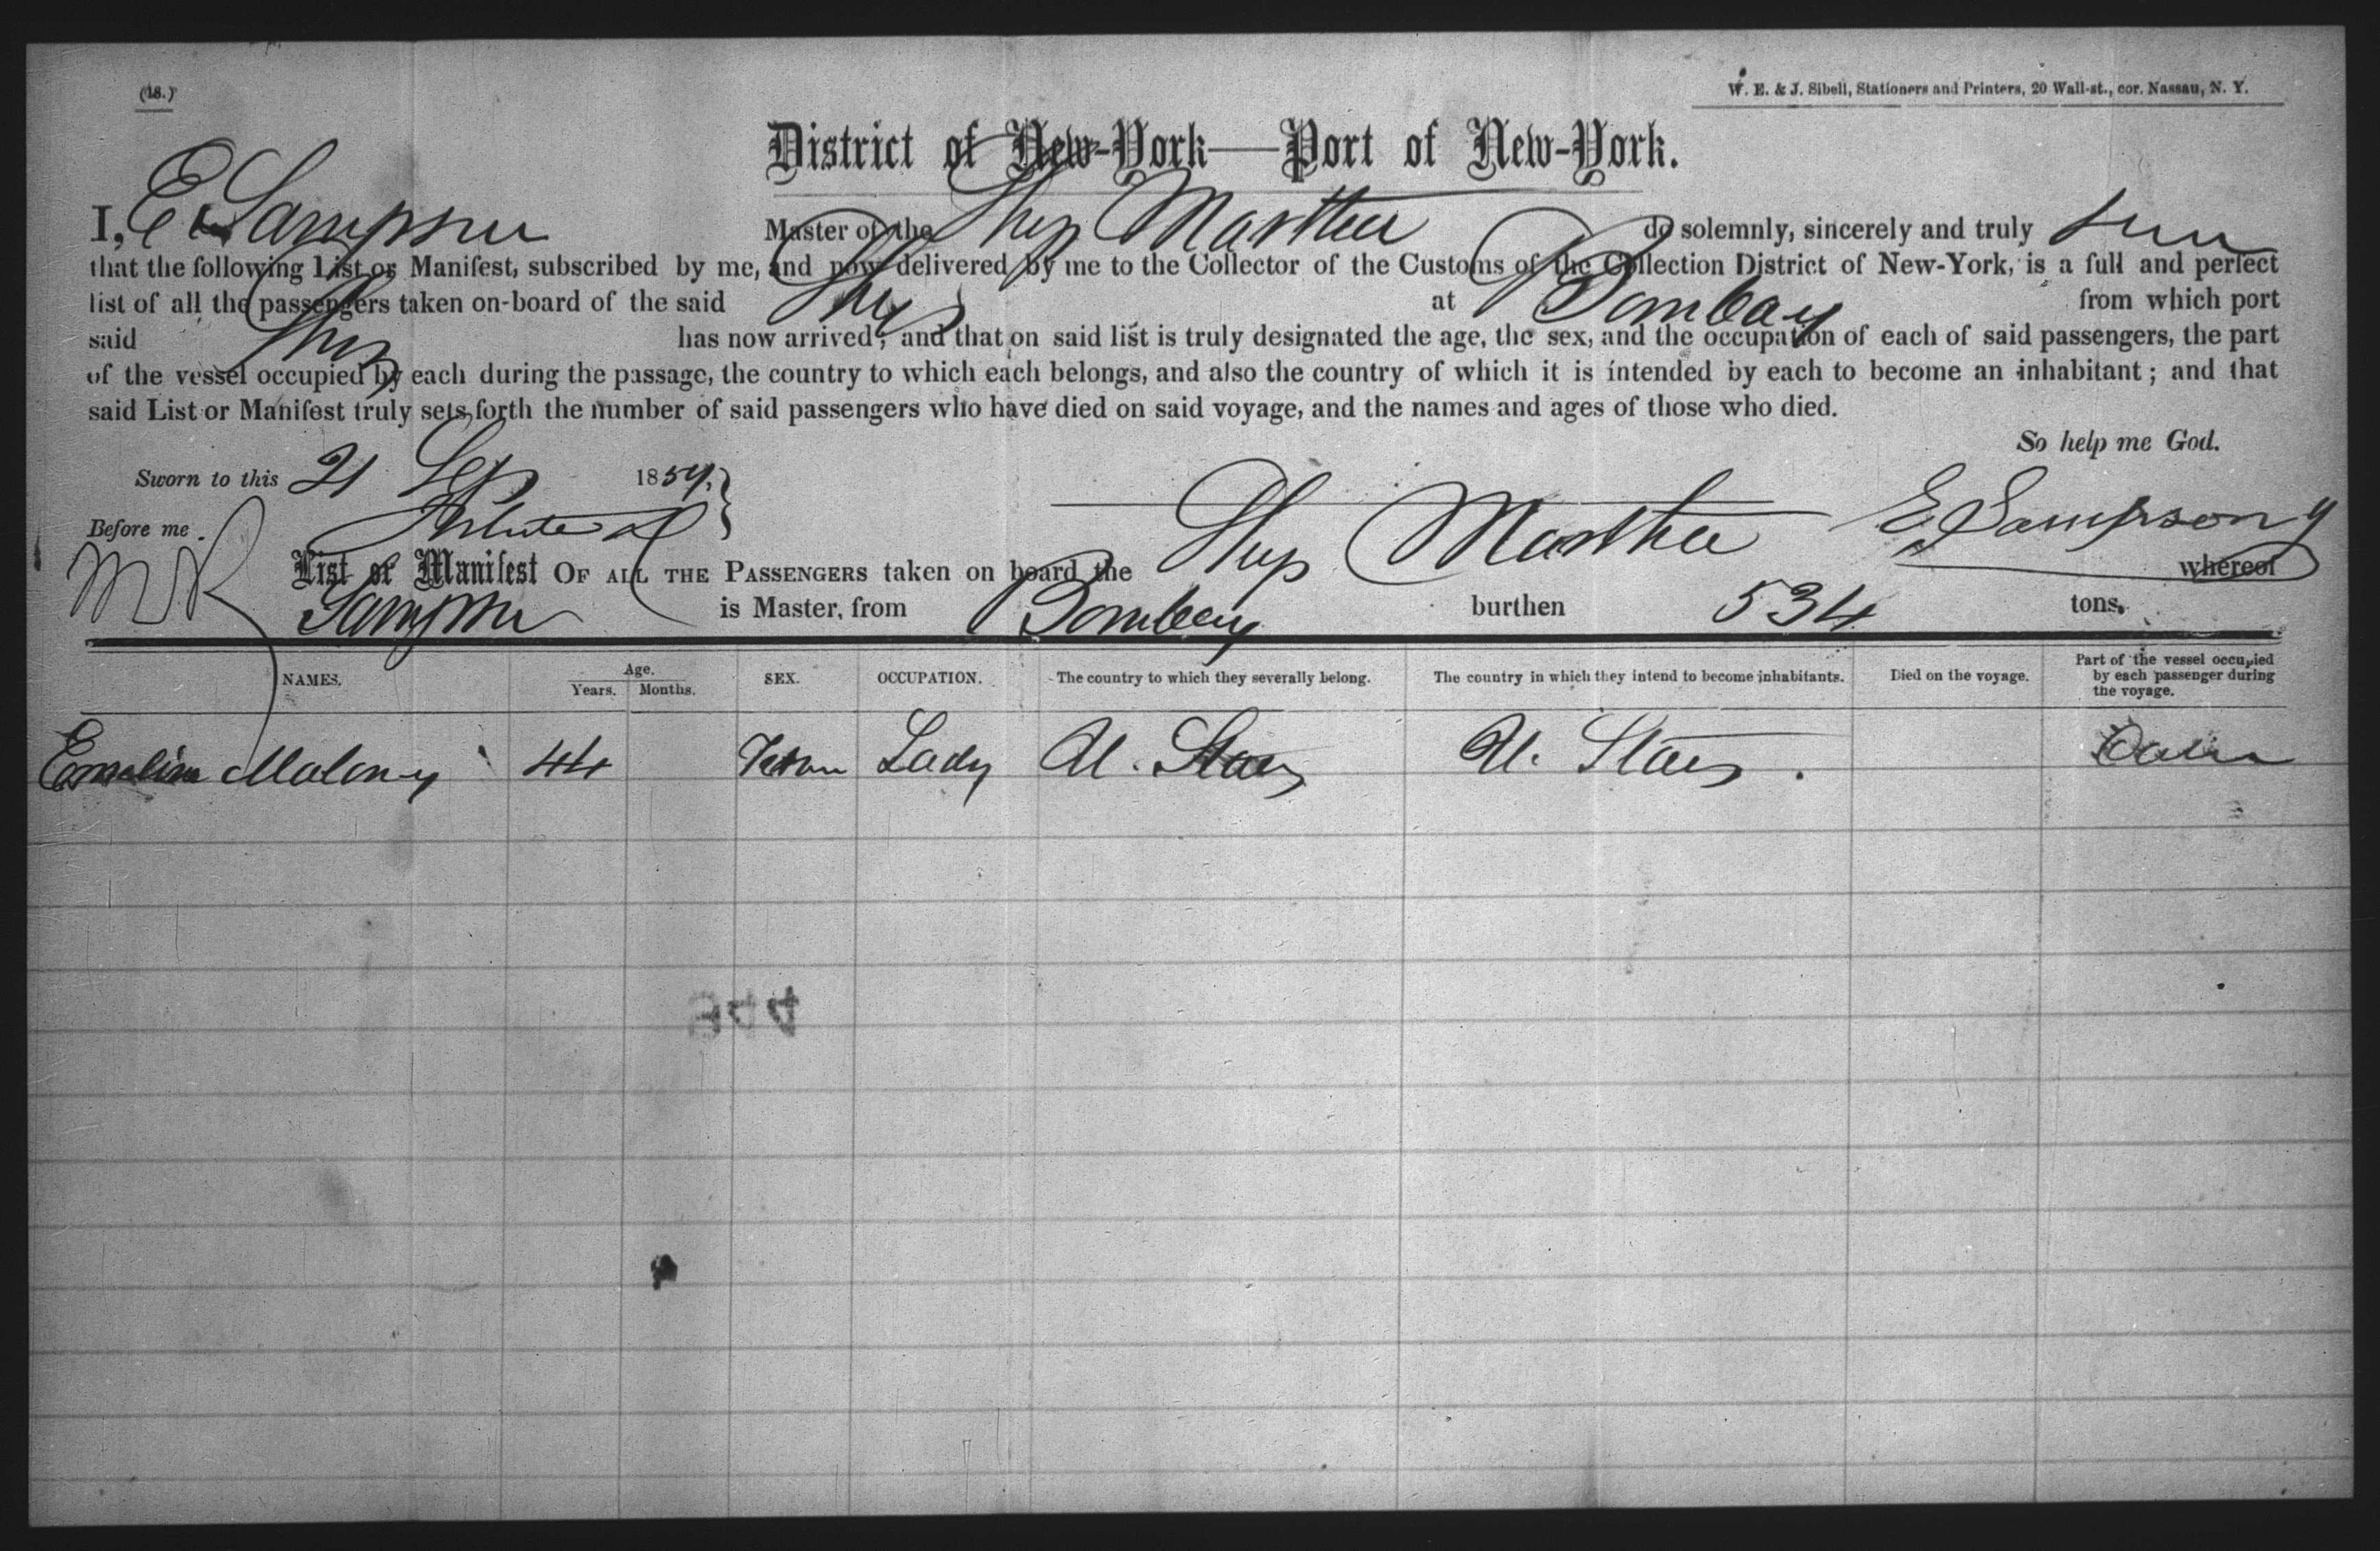 (18.)
W. E. & J. Sibell, Stationers and Printers, 20 Wall-st., cor. Nassau, N. Y.
District of New-York—Port of New-York.
I, E Sampson Master of the Ship Martha do solemnly, sincerely and truly
that the following List or Manifest, subscribed by me, and now delivered by me to the Collector of the Customs of the Collection District of New-York, is a full and perfect
list of all the passengers taken on-board of the said Ship at Bombay from which port
said Ship has now arrived; and that on said list is truly designated the age, the sex, and the occupation of each of said passengers, the part
of the vessel occupied by each during the passage, the country to which each belongs, and also the country of which it is intended by each to become an inhabitant; and that
said List or Manifest truly sets forth the number of said passengers who have died on said voyage, and the names and ages of those who died.
So help me God.
Sworn to this 21 Sep 1859.
E Sampson
Before me.
List or Manifest OF ALL THE PASSENGERS taken on board the Ship Martha whereof
Sampson is Master, from Bombay burthen 534 tons.
NAMES. Age. Years. Months. SEX. OCCUPATION. The country to which they severally belong. The country in which they intend to become inhabitants. Died on the voyage. Part of the vessel occupied by each passenger during the voyage.
Emeline Maloney 44 Lady U. States U. States.
944